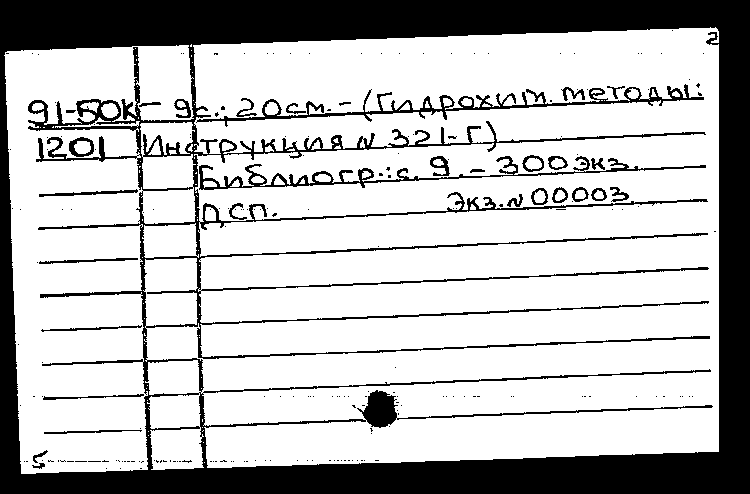 2
91-50к – 9с.; 20см. – (Гидрохим. методы:
1201 Инструкция № 321-Г)
Библиогр.: с. 9. – 300экз.
ДСП. Экз.№ 00003
5